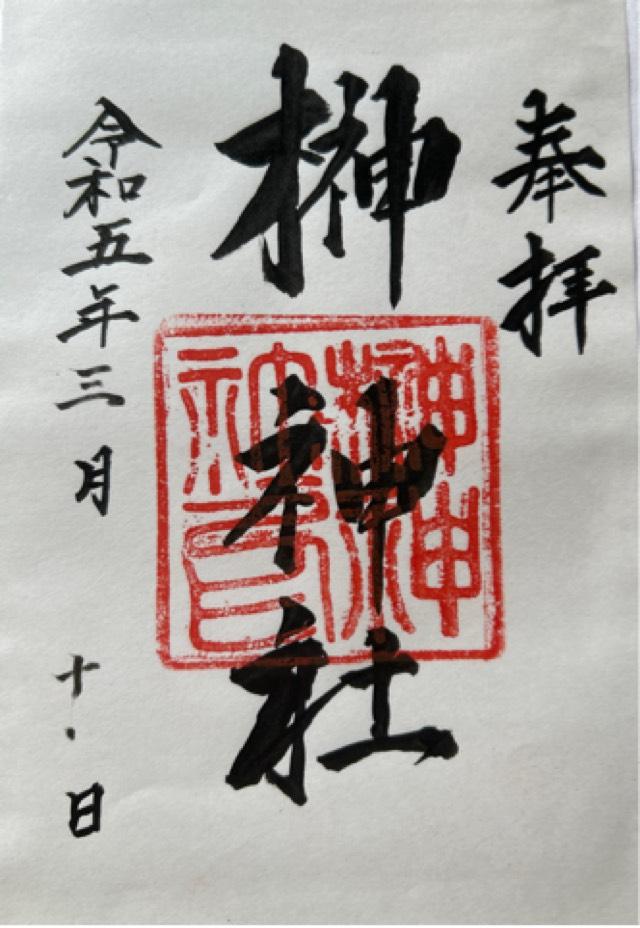 奉拝
榊神社
榊神
社印
令和五年三月十・日